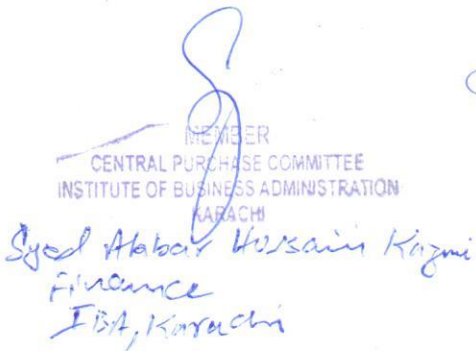 MEMBER
CENTRAL PURCHASE COMMITTEE
INSTITUTE OF BUSINESS ADMINISTRATION
KARACHI
Syed Hussain Kazmi
Finance
IBA, Karachi